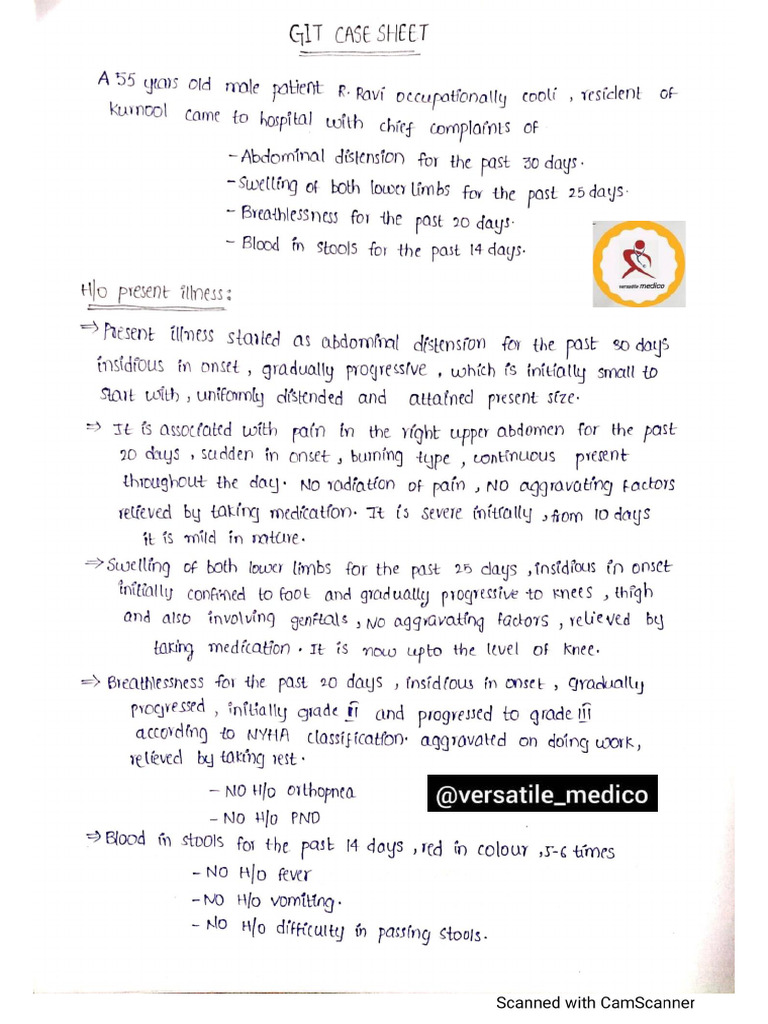 GIT CASE SHEET
A 55 years old male patient R. Ravi occupationally cooli, resident of
Kurnool came to hospital with chief complaints of
- Abdominal distension for the past 30 days.
- Swelling of both lower limbs for the past 25 days.
- Breathlessness for the past 20 days.
- Blood in stools for the past 14 days.
versatile medico
H/o present illness:
⇒ Present illness started as abdominal distension for the past 30 days
insidious in onset, gradually progressive, which is initially small to
start with, uniformly distended and attained present size.
⇒ It is associated with pain in the right upper abdomen for the past
20 days, sudden in onset, burning type, continuous present
throughout the day. No radiation of pain, No aggravating factors
relieved by taking medication. It is severe initially, from 10 days
it is mild in nature.
⇒ Swelling of both lower limbs for the past 25 days, insidious in onset
initially confined to foot and gradually progressive to knees, thigh
and also involving genitals, No aggravating factors, relieved by
taking medication. It is now upto the level of knee.
⇒ Breathlessness for the past 20 days, insidious in onset, gradually
progressed, initially grade II and progressed to grade III
according to NYHA classification. aggravated on doing work,
relieved by taking rest.
- NO H/o orthopnea
@versatile_medico
- NO H/o PND
⇒ Blood in stools for the past 14 days, red in colour, 5-6 times
- NO H/o fever
- NO H/o vomiting.
- NO H/o difficulty in passing stools.
Scanned with CamScanner